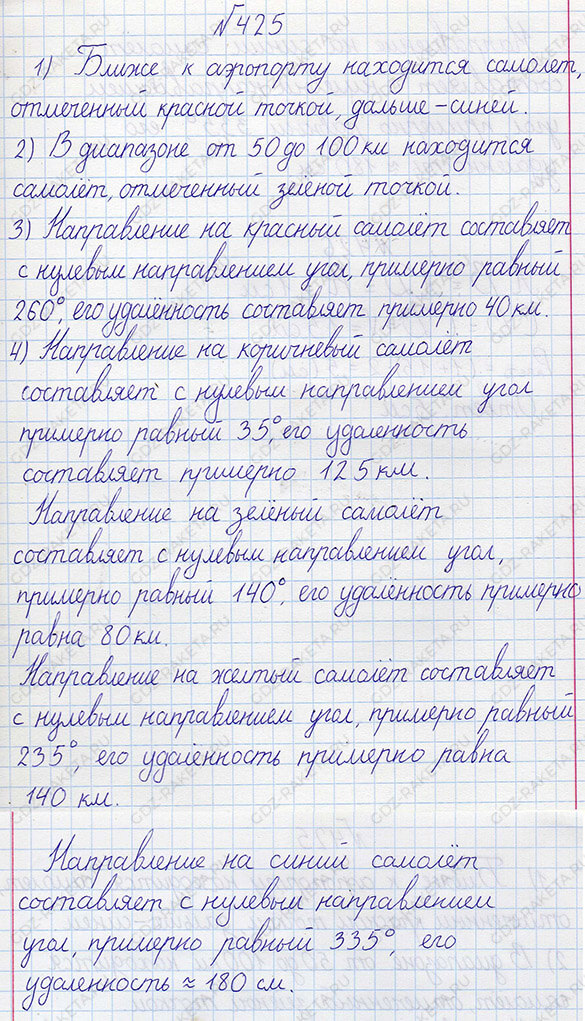 №425
1) Ближе к аэропорту находится самолет,
отмеченный красной точкой, дальше – синей.
2) В диапазоне от 50 до 100 км находится
самолёт, отмеченный зелёной точкой.
3) Направление на красный самолёт составляет
с нулевым направлением угол, примерно равный
260°, его удалённость составляет примерно 40 км.
4) Направление на коричневый самолёт
составляет с нулевым направлением угол
примерно равный 35°, его удаленность
составляет примерно 125 км.
Направление на зелёный самолёт
составляет с нулевым направлением угол,
примерно равный 140°, его удалённость примерно
равна 80 км.
Направление на желтый самолёт составляет
с нулевым направлением угол, примерно равный
235°, его удаленность примерно равна
140 км.
Направление на синий самолёт
составляет с нулевым направлением
угол, примерно равный 335°, его
удаленность ≈ 180 см.